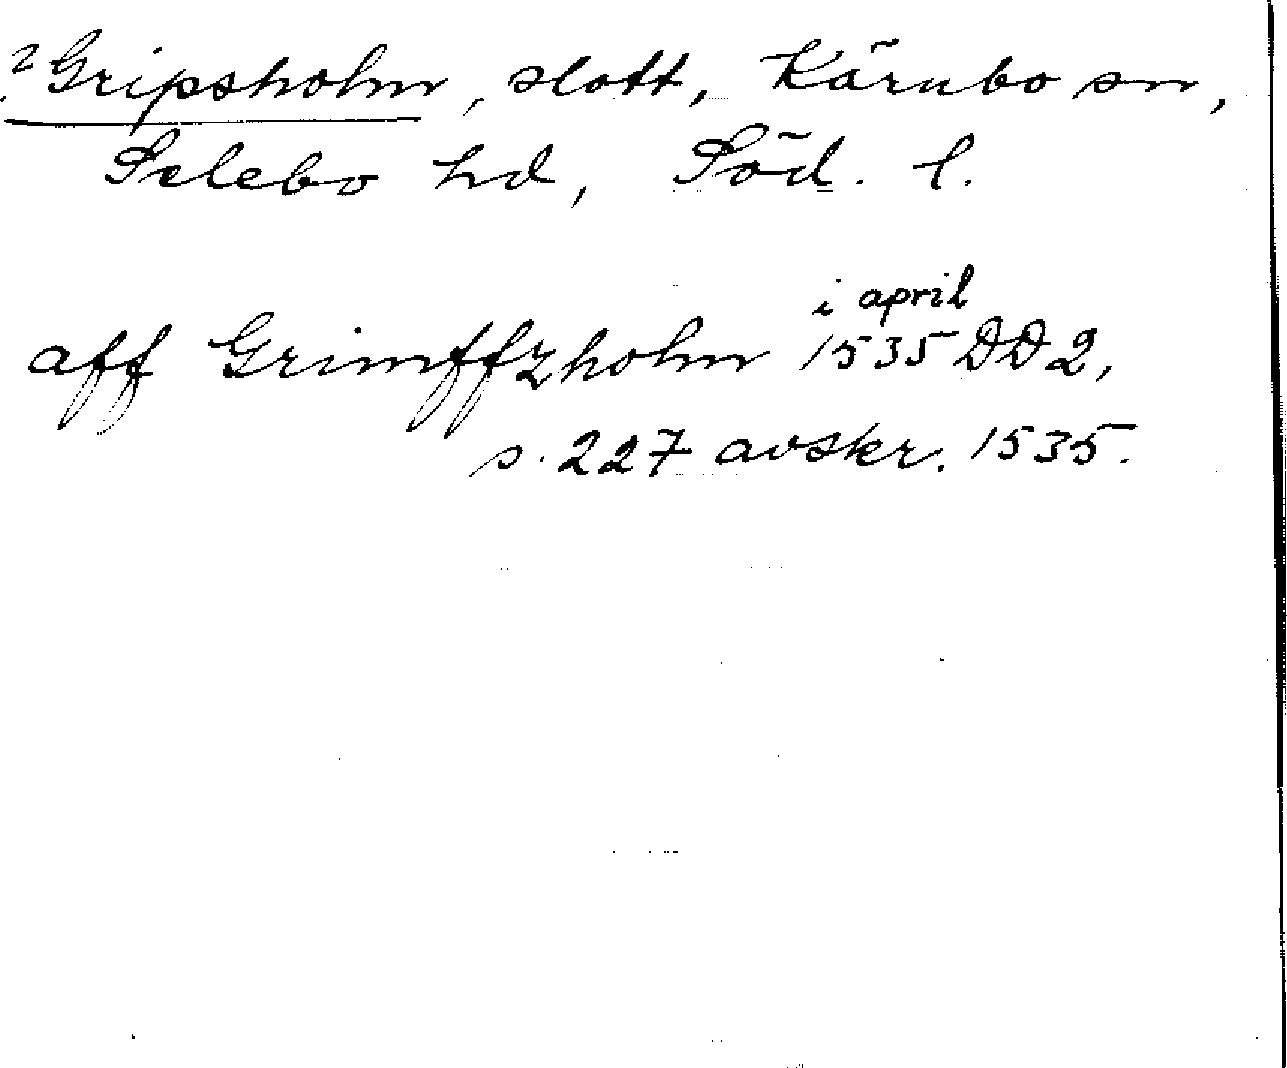 ? Gripsholm, slott, Kärnbo sn,
Selebo hd, Söd. l.
i april
aff Grimffzholm 1535 DD2,
s. 227 avskr. 1535.